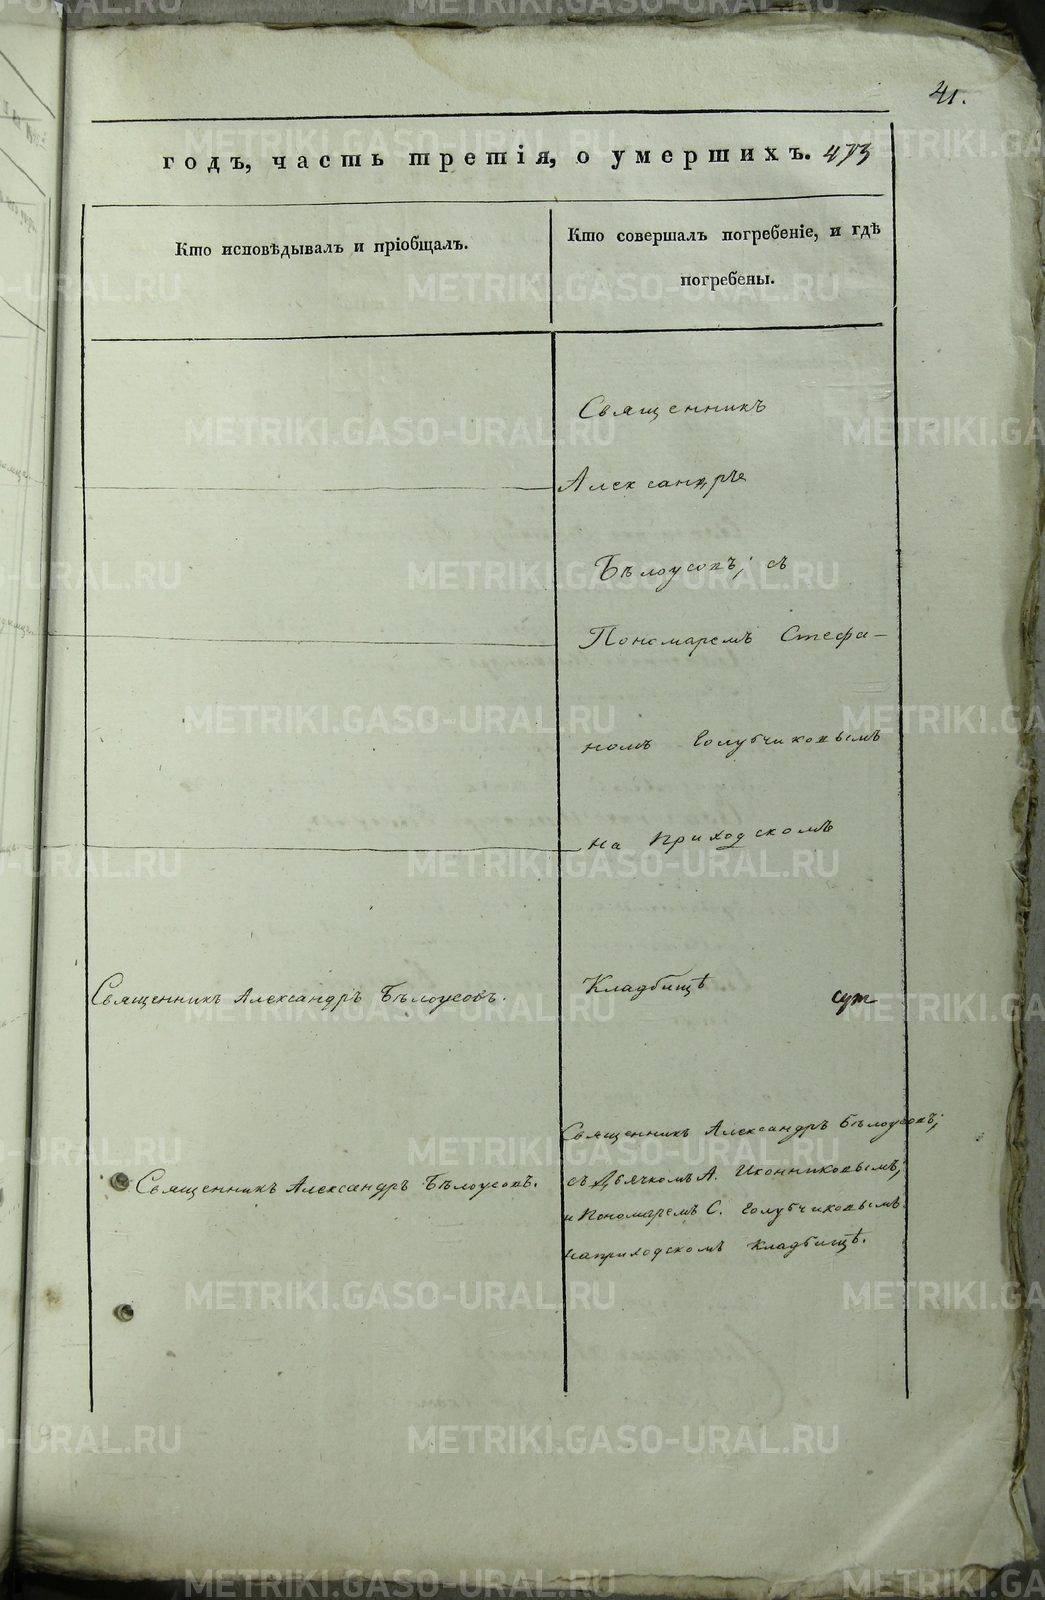 41.
годъ, часть третія, о умершихъ. 473
Кто исповѣдывалъ и пріобщалъ.
Кто совершалъ погребеніе, и гдѣ
погребены.
Священникъ
Александръ
Бѣлоусовъ; съ
Пономаремъ Стефа-
номъ Голубчиковымъ
на приходскомъ
Священникъ Александръ Бѣлоусовъ.
Кладбищѣ
Священникъ Александръ Бѣлоусовъ.
Священникъ Александръ Бѣлоусовъ;
съ Дьячкомъ А. Иконниковымъ;
и Пономаремъ С. Голубчиковымъ
на приходскомъ кладбищѣ.
METRIKI.GASO-URAL.RU